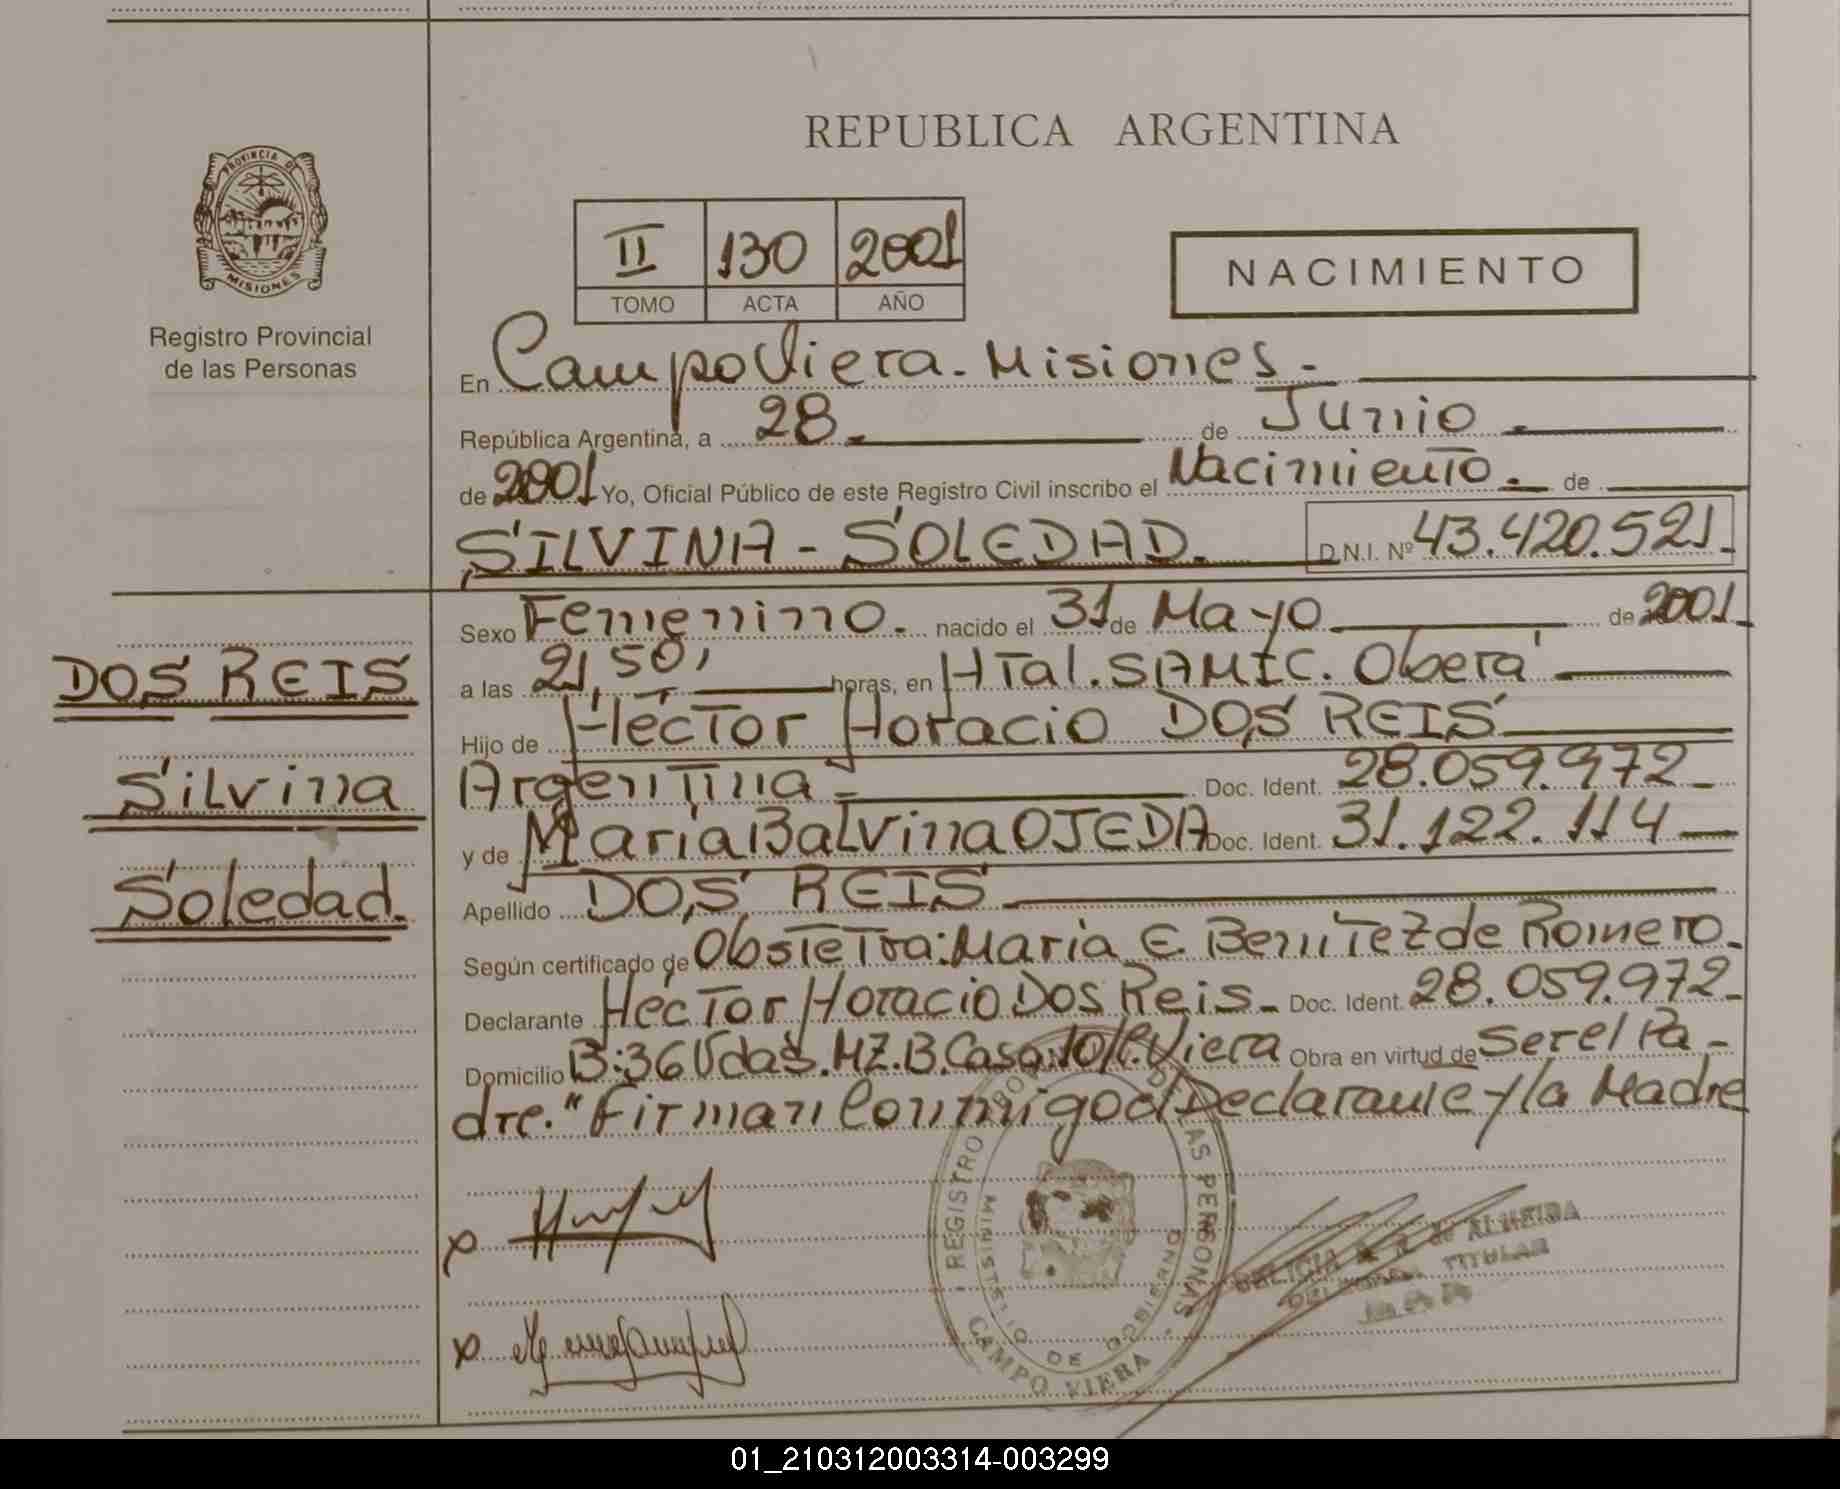 REPUBLICA ARGENTINA
PROVINCIA DE
MISIONES
Registro Provincial
de las Personas
II 130 2001
TOMO ACTA AÑO
NACIMIENTO
En Campo Viera - Misiones.-
República Argentina, a 28.- de Junio.-
de 2001 Yo, Oficial Público de este Registro Civil inscribo el Nacimiento.- de
SILVINA - SOLEDAD. D.N.I. Nº 43.420.521.-
DOS REIS
Silvina
Soledad.
Sexo Femenino.- nacido el 31 de Mayo de 2001.-
a las 21,50, horas, en HTal. SAMIC. Oberá
Hijo de Héctor Horacio DOS REIS
Argentina - Doc. Ident. 28.059.972-
y de María Balvina OJEDA Doc. Ident. 31.122.114
Apellido DOS REIS
Según certificado de Obstetra: María E Benítez de Romero.-
Declarante Héctor Horacio Dos Reis.- Doc. Ident. 28.059.972-
Domicilio B:36 Vdas. MZ.B. Casa:10/C.Viera Obra en virtud de Ser el Pa-
dre." Firman Conmigo el Declarante y la Madre
REGISTRO DE LAS PERSONAS
MINISTERIO DE GOBIERNO
CAMPO VIERA
x
x
DELICIA de ALMEIDA
TITULAR
01_210312003314-003299